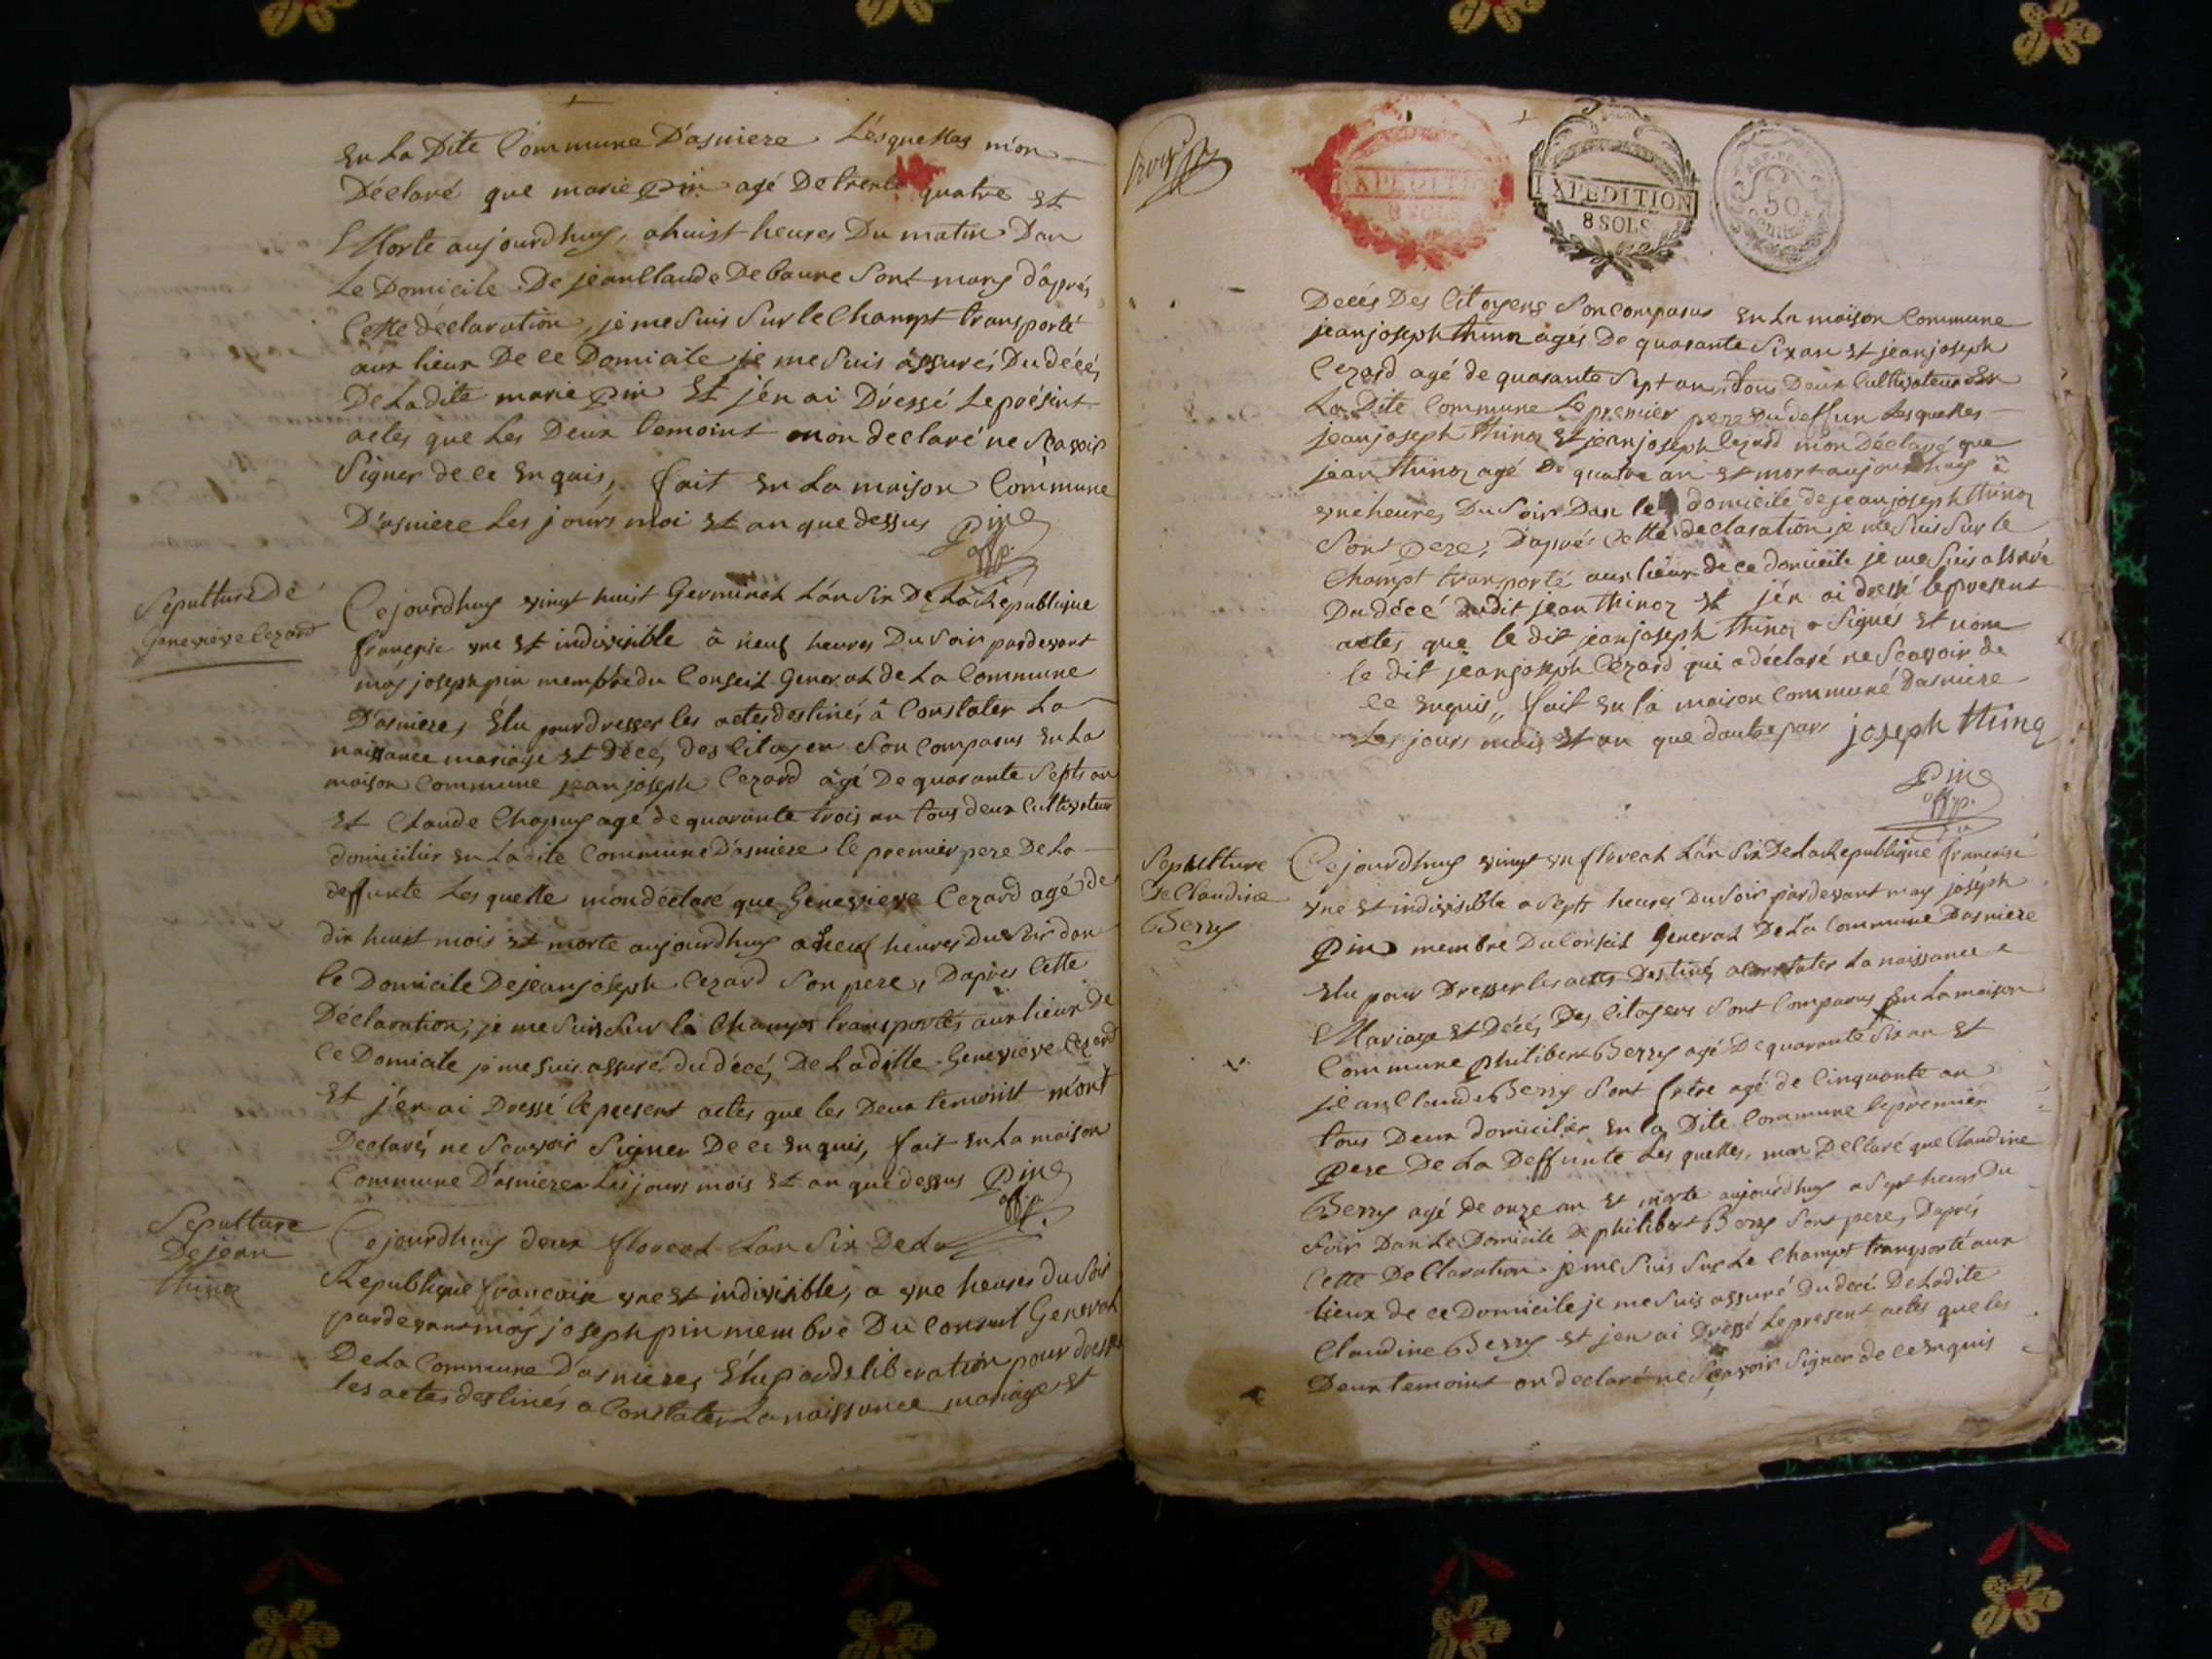 En La Dite Commune D'asniere Lésquelles m'on
Déclaré que marie pin agé De trente quatre Et
Morte aujourdhuy, a huist heures Du matin Dan
Le Domicile De jean Claude Debaune Sont mary d'aprés
Cette déclaration, je me Suis Sur le Champt transporté
aux lieux De ce Domicile je me Suis assurés Du décés
De Ladite marie pin Et j'én ai Dréssé Le présint
actes que Les Deux temoint mon declaré ne Scavoir
Signer de ce Enquis, fait En La maison Commune
D'asniere Les jours moi Et an que dessus Pin
off.p.
Sepulture de
Genevieve Cezard
Cejourdhuy vingt huist Germinal L'an Six De La Republique
française une Et indivisible à neuf heures Du Soir pardevant
moy joseph pin membre du Conseil General de La Commune
D'asnieres Élu pour dresser les actes destinés à Constater La
naissance mariage Et Décé, des Citoyen Son Comparus En La
maison Commune jean joseph Cezard âgé De quarante Septs an
Et Claude Chapuy agé de quarante trois an tous deux Cultivateur
domicilier En Ladite Commune D'asniere le premier pere De La
deffunte Les quelle mon déclaré que Genevieve Cezard agé de
dix huist mois Et morte aujourdhuy a neuf heures Du Soir dan
le Domicile De jean joseph Cezard Son pere, D'apres Cette
Déclaration, je me Suis Sur le Champt transportés aux lieux de
Ce Domicile je me Suis assuré du décé, De Laditte Genevieve Cezard
Et j'én ai Dressé le present actes que les Deux temoint m'ont
Declarés ne Scavoir Signer De ce Enquis, fait En La maison
Commune D'asnieres Les jours mois Et an que dessus Pin
off.p.
Sepulture
De jean
thinoz
Cejourdhuy deux floreal L'an Six De La
Republique françaix une Et indivisible, a une heures du Soir
pardevant moy joseph pin membre Du Conseil General
De La Commune D'asnieres Élu par deliberation pour dresser
les actes destinés a Constater La naissance mariage Et
EXPEDITION
8 SOLS
EXPEDITION
8 SOLS
50
Decés Des Citoyens Son comparus En La maison Commune
jean joseph thinoz agés De quarante Six an Et jean joseph
Cezard agé de quarante Sept an, tous Deux Cultivateur En
La Dite Commune Le premier pere du deffun Les quelles
jean joseph thinoz Et jean joseph Cezard mon Déclaré que
jean thinoz agé De quatre an Et mort aujourdhuy à
une heures Du Soir Dan le domicile de jean joseph thinoz
Sont pere, D'aprés Cette declaration je me Suis Sur le
Champt transporté aux lieux de ce domicile je me Suis assuré
Du décé dudit jean thinoz Et j'én ai dressé le present
actes que le dit jean joseph thinoz a Signés Et nom
le dit jean joseph Cezard qui a déclaré ne Scavoir de
ce Enquis, fait En la maison Commune d'asniere
Les jours mois Et an que dautre pars joseph thinoz
Pin
off.p.
Sepulture
De Claudine
Berry
Cejourdhuy vingt un floreal L'an Six De La Republique francaise
une Et indivisible a Septs heures Du Soir pardevant moy joséph
Pin membre Du Conseil General De La Commune D'asniere
Elu pour Dresser les actes Destinés a Constater La naissance
Mariage Et Décés, Des Citoyens Sont Comparus En La maison
Commune philibert Berry agé De quarante Six an Et
jean Claude Berry Sont frtre agé de Cinquante an
tous Deux domicilier En La Dite Commune le premier
pere De La Deffunte Les quelles, mon Declaré que Claudine
Berry agé de onze an Et morte aujourdhuy a Sept heures Du
Soir Dan Le Domicile De philibert Berry Sont pere, D'aprés
Cette Declaration je me Suis Sur Le Champt transporté aux
lieux de ce Domicile je me Suis assuré Du décé De Ladite
Claudine Berry Et jen ai Dressé Le present actes que les
Deux temoint on declaré ne Scavoir Signer de ce Enquis